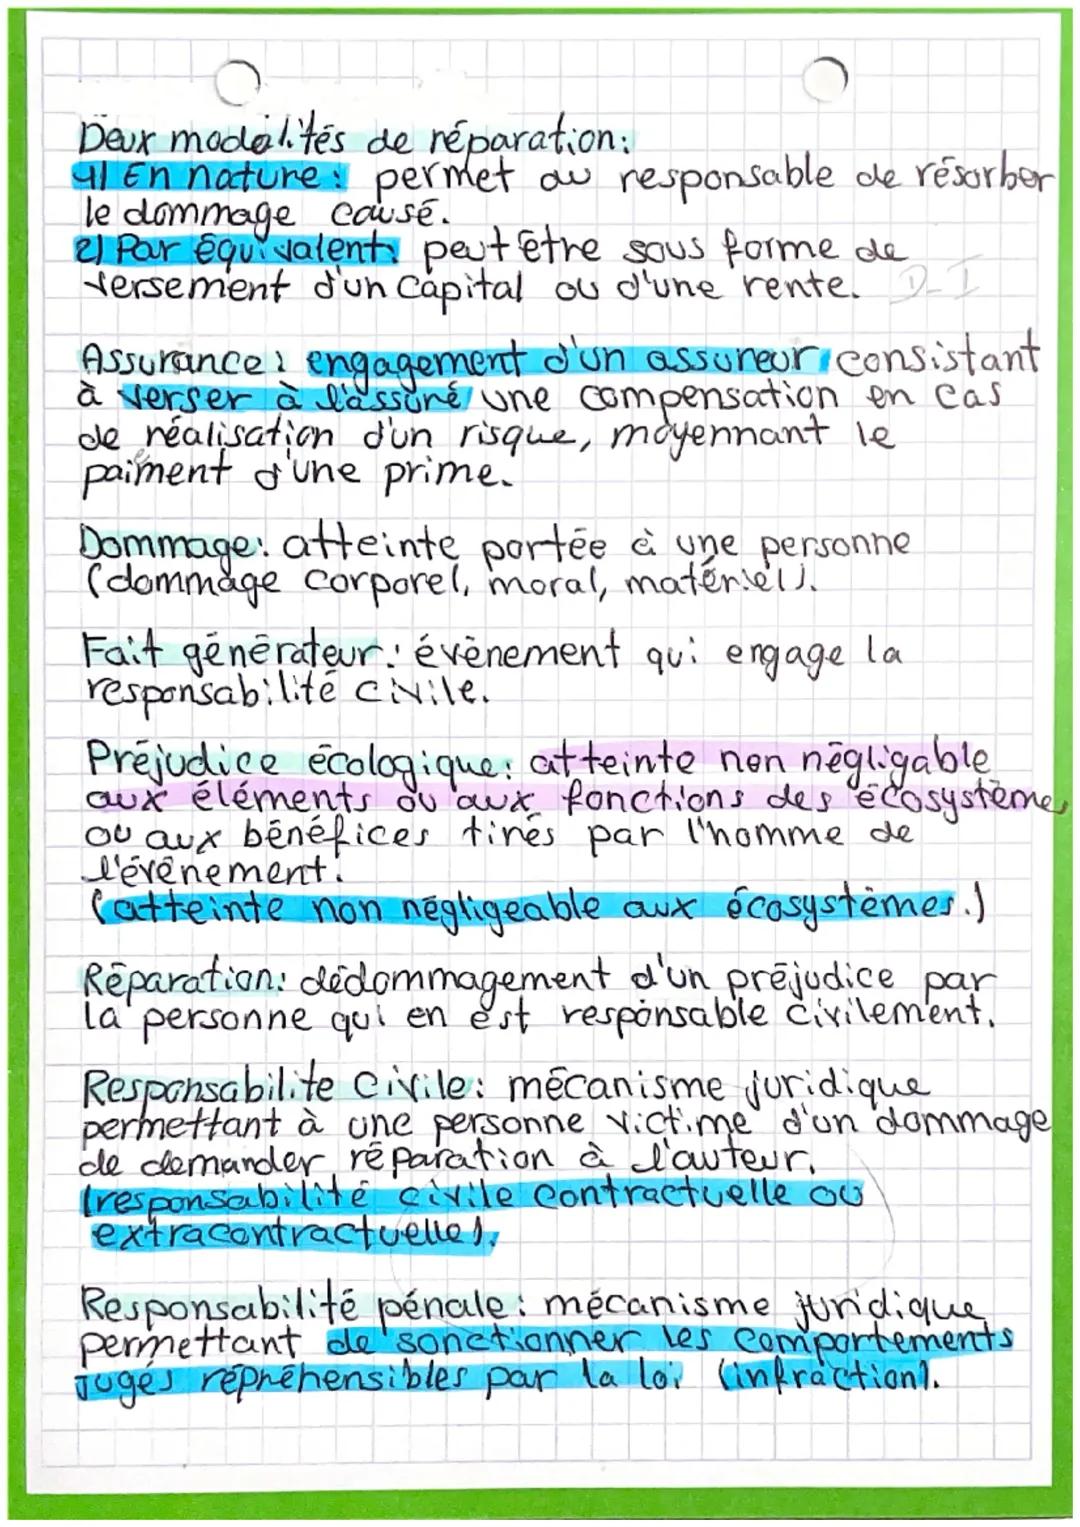 Deux modalités de réparation:
1) En nature: permet au responsable de résorber
le dommage causé.
2) Par équivalent: peut être sous forme de
versement d'un capital ou d'une rente. D-I
Assurance: engagement d'un assureur consistant
à verser à l'assuré une compensation en cas
de réalisation d'un risque, moyennant le
paiement d'une prime.
Dommage: atteinte portée à une personne
(dommage corporel, moral, matériel).
Fait générateur: évènement qui engage la
responsabilité civile.
Préjudice écologique: atteinte non négligable
aux éléments ou aux fonctions des écosystèmes
ou aux bénéfices tirés par l'homme de
l'évênement.
(atteinte non négligeable aux écosystèmes.)
Réparation: dédommagement d'un préjudice par
la personne qui en est responsable civilement.
Responsabilite Civile: mécanisme juridique
permettant à une personne victime d'un dommage
de demander réparation à l'auteur.
(responsabilité civile contractuelle ou
extracontractuelle).
Responsabilité pénale: mécanisme juridique
permettant de sanctionner les comportements
jugés répréhensibles par la loi (infraction).